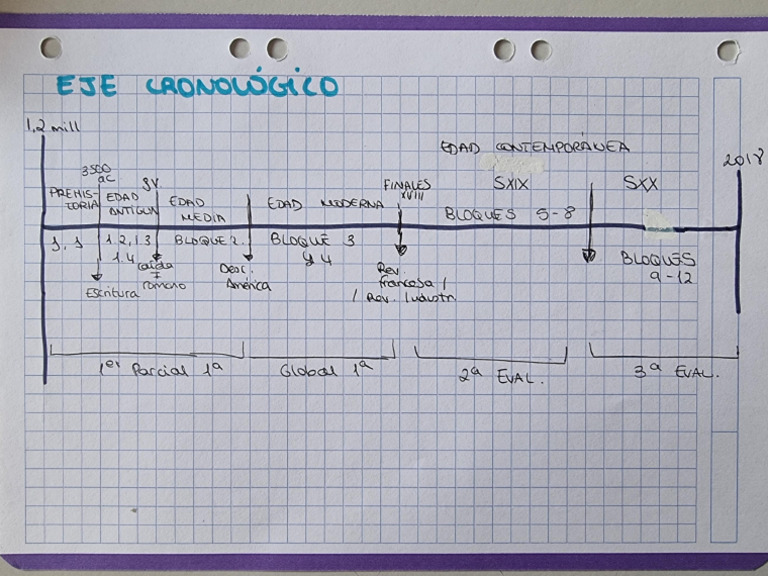 EJE CRONOLÓGICO
1,2 mill
EDAD CONTEMPORÁNEA
2018
3500
aC
SV
FINALES
XVIII
SXIX
SXX
PREHIS-
TORIA
EDAD
ANTIGUA
EDAD
MEDIA
EDAD MODERNA
BLOQUES 5-8
1.1
1.2, 1.3
1.4
BLOQUE 2
BLOQUE 3
y 4
BLOQUES
9-12
Escritura
Caída
I
romano
Desc.
América
Rev.
francesa /
/ Rev. Industr.
1er Parcial 1ª
Global 1ª
2ª EVAL.
3ª EVAL.